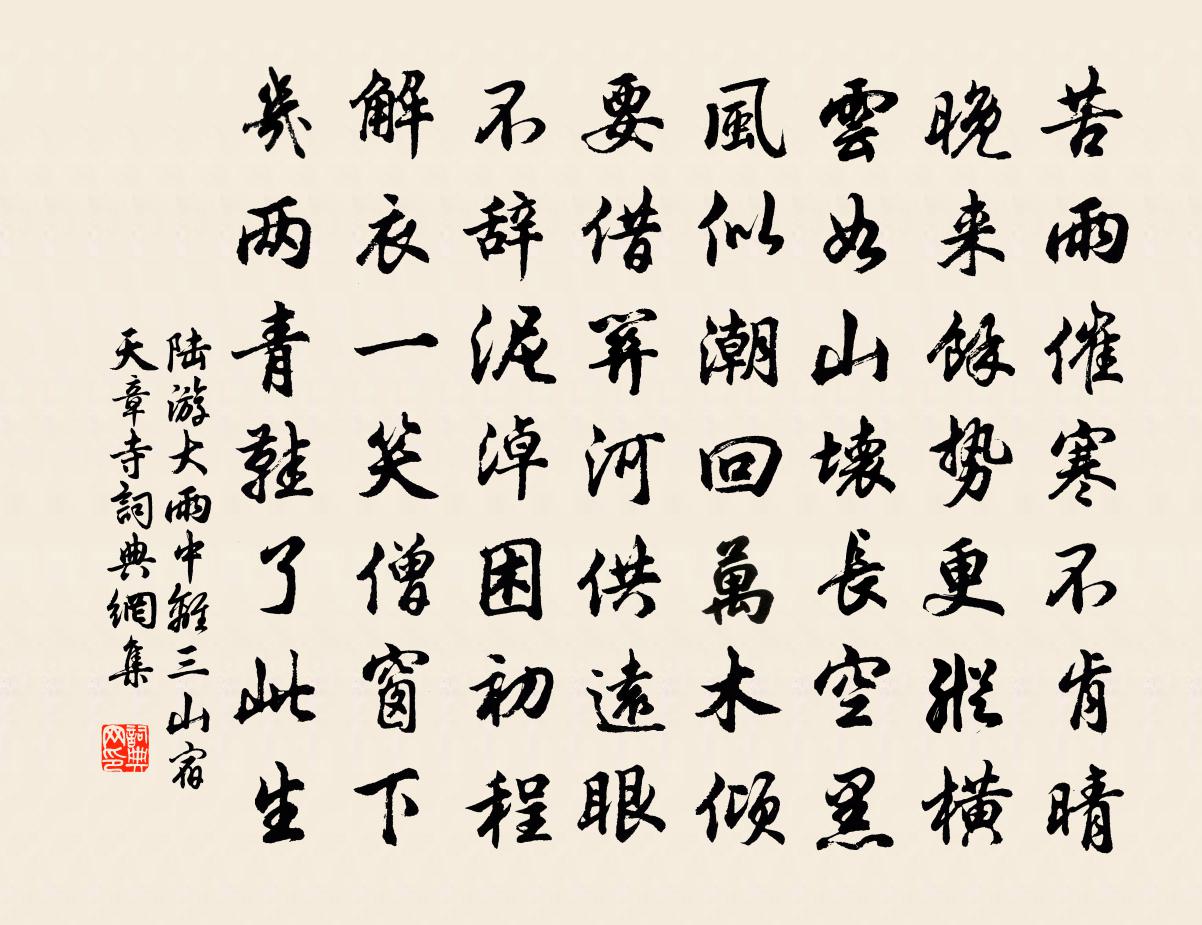 苦雨催寒不肯晴
晚来餘势更縱橫
雲如山壞長空黑
風似潮回萬木傾
要借笄河供遠眼
不辞泥淖困初程
解衣一笑僧窗下
幾两青鞋了此生
陆游大雨中離三山宿
天章寺詞典網集
詞典网印